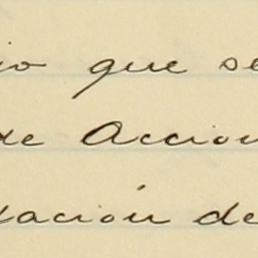 io que se
de Accion
dación de